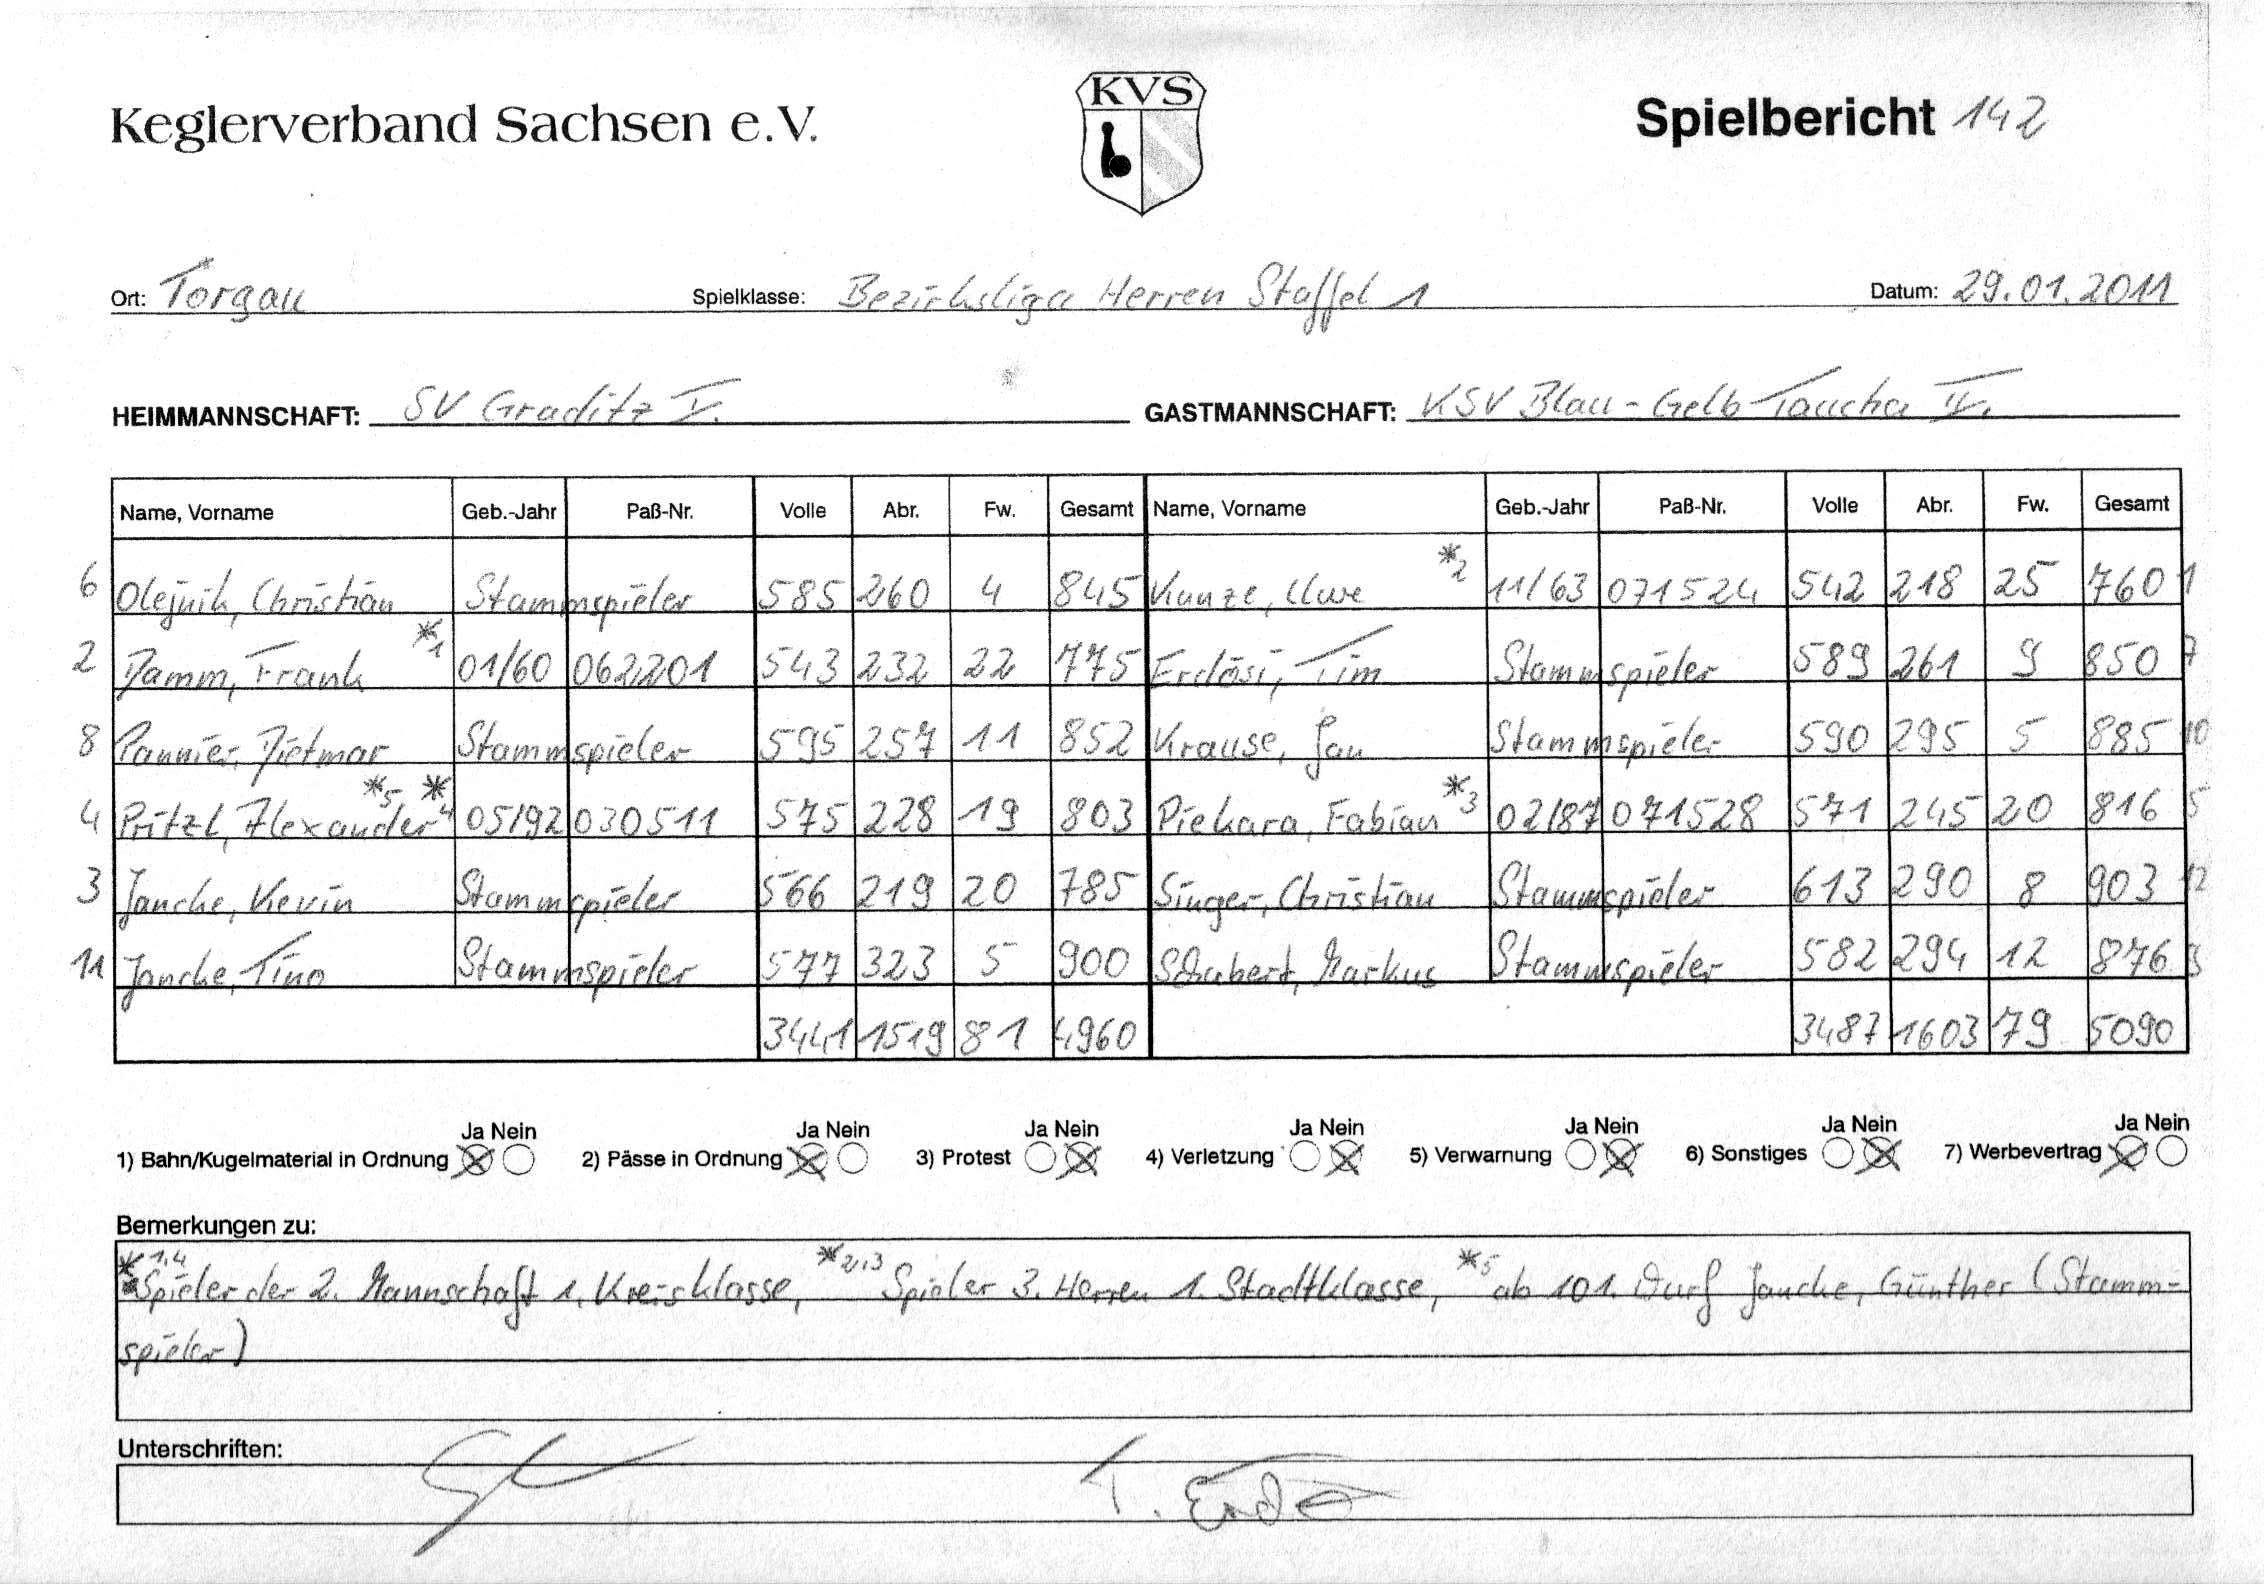 Keglerverband Sachsen e.V.
KVS
Spielbericht 142
Ort: Torgau Spielklasse: Bezirksliga Herren Staffel 1 Datum: 29.01.2011
HEIMMANNSCHAFT: SV Graditz I. GASTMANNSCHAFT: KSV Blau-Gelb Taucha II.
Name, Vorname Geb.-Jahr Paß-Nr. Volle Abr. Fw. Gesamt Name, Vorname Geb.-Jahr Paß-Nr. Volle Abr. Fw. Gesamt
6 Olejnik, Christian Stammspieler 585 260 4 845 Kunze, Uwe *2 11/63 071524 542 218 25 760 1
2 Damm, Frank *1 01/60 062201 543 232 22 775 Erdösi, Tim Stammspieler 589 261 9 850 7
8 Pannier, Dietmar Stammspieler 595 257 11 852 Krause, Jan Stammspieler 590 295 5 885 10
4 Pritzl, Alexander *5 *4 05/92 030511 575 228 19 803 Piekara, Fabian *3 02/87 071528 571 245 20 816 5
3 Jancke, Kevin Stammspieler 566 219 20 785 Singer, Christian Stammspieler 613 290 8 903 12
11 Jancke, Tino Stammspieler 577 323 5 900 Schubert, Markus Stammspieler 582 294 12 876 9
3441 1519 81 4960 3487 1603 79 5090
Ja Nein Ja Nein Ja Nein Ja Nein Ja Nein Ja Nein Ja Nein
1) Bahn/Kugelmaterial in Ordnung 2) Pässe in Ordnung 3) Protest 4) Verletzung 5) Verwarnung 6) Sonstiges 7) Werbevertrag
Bemerkungen zu:
*1,4 Spieler der 2. Mannschaft 1. Kreisklasse, *2,3 Spieler 3. Herren 1. Stadtklasse, *5 ab 101. Wurf Jancke, Günther (Stamm-
spieler)
Unterschriften: